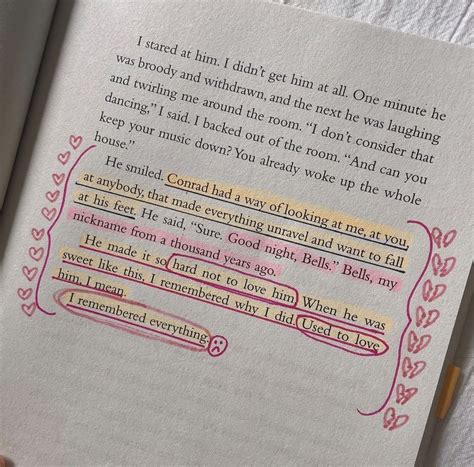 I stared at him. I didn't get him at all. One minute he
was broody and withdrawn, and the next he was laughing
and twirling me around the room. "I don't consider that
dancing," I said. I backed out of the room. "And can you
keep your music down? You already woke up the whole
house."
He smiled. Conrad had a way of looking at me, at you
at anybody, that made everything unravel and want to fall
at his feet. He said, "Sure. Good night, Bells." Bells, my
nickname from a thousand years ago.
He made it so hard not to love him. When he was
sweet like this, I remembered why I did. Used to love
him, I mean.
I remembered everything.